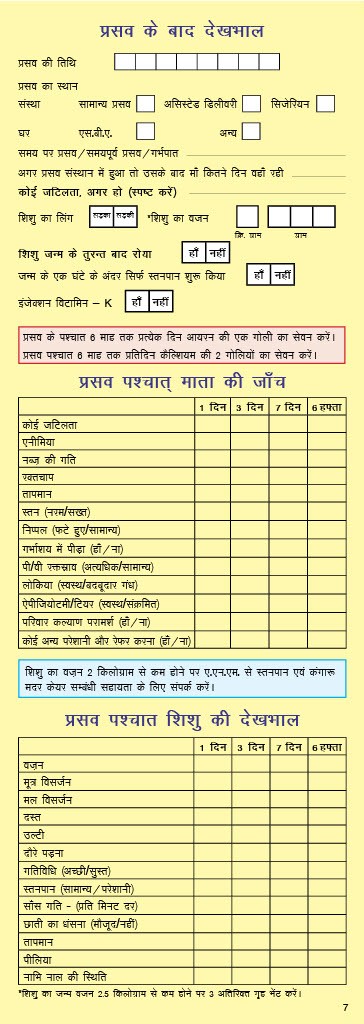 प्रसव के बाद देखभाल
प्रसव की तिथि
प्रसव का स्थान
संस्था सामान्य प्रसव असिस्टेड डिलीवरी सिजेरियन
घर एस.बी.ए. अन्य
समय पर प्रसव/समयपूर्व प्रसव/गर्भपात
अगर प्रसव संस्थान में हुआ तो उसके बाद माँ कितने दिन वहाँ रही
कोई जटिलता, अगर हो (स्पष्ट करें)
शिशु का लिंग लड़का लड़की *शिशु का वजन
कि. ग्राम ग्राम
शिशु जन्म के तुरन्त बाद रोया हाँ नहीं
जन्म के एक घंटे के अंदर सिर्फ स्तनपान शुरू किया हाँ नहीं
इंजेक्शन विटामिन – K हाँ नहीं
प्रसव के पश्चात 6 माह तक प्रत्येक दिन आयरन की एक गोली का सेवन करें।
प्रसव पश्चात 6 माह तक प्रतिदिन कैल्शियम की 2 गोलियों का सेवन करें।
प्रसव पश्चात् माता की जाँच
1 दिन 3 दिन 7 दिन 6 हफ्ता
कोई जटिलता
एनीमिया
नब्ज़ की गति
रक्तचाप
तापमान
स्तन (नरम/सख्त)
निप्पल (फटे हुए/सामान्य)
गर्भाशय में पीड़ा (हाँ/ना)
पी/वी रक्तस्राव (अत्यधिक/सामान्य)
लोकिया (स्वस्थ/बदबूदार गंध)
ऐपीजियोटमी/टियर (स्वस्थ/संक्रमित)
परिवार कल्याण परामर्श (हाँ/ना)
कोई अन्य परेशानी और रेफर करना (हाँ/ना)
शिशु का वज़न 2 किलोग्राम से कम होने पर ए.एन.एम. से स्तनपान एवं कंगारू
मदर केयर सम्बंधी सहायता के लिए संपर्क करें।
प्रसव पश्चात शिशु की देखभाल
1 दिन 3 दिन 7 दिन 6 हफ्ता
वज़न
मूत्र विसर्जन
मल विसर्जन
दस्त
उल्टी
दौरे पड़ना
गतिविधि (अच्छी/सुस्त)
स्तनपान (सामान्य/परेशानी)
साँस गति - (प्रति मिनट दर)
छाती का धंसना (मौजूद/नहीं)
तापमान
पीलिया
नाभि नाल की स्थिति
*शिशु का जन्म वजन 2.5 किलोग्राम से कम होने पर 3 अतिरिक्त गृह भेंट करें।
7